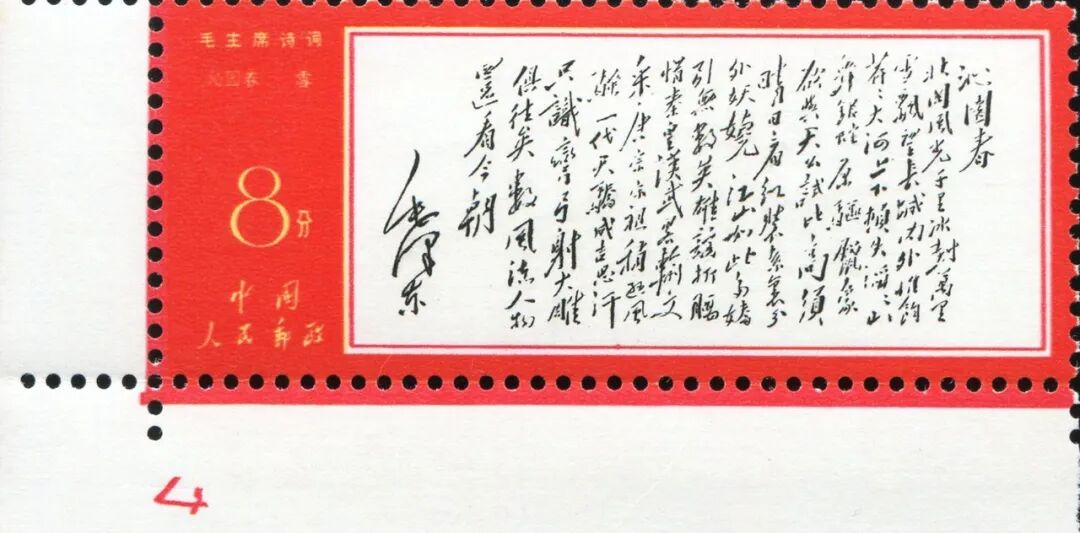 毛主席诗词
沁园春 雪
8分
中國
人民郵政
沁園春
北國風光千里冰封萬里
雪飄望長城内外惟餘
莽々大河上下頓失滔々山
舞銀蛇原驅臘象
欲與天公試比高須
晴日看紅裝素裹分
外妖嬈江山如此多嬌
引無數英雄競折腰
惜秦皇漢武略輸文
采唐宗宋祖稍遜風
騷一代天驕成吉思汗
只識彎弓射大雕
俱往矣數風流人物
還看今朝
毛澤东
4